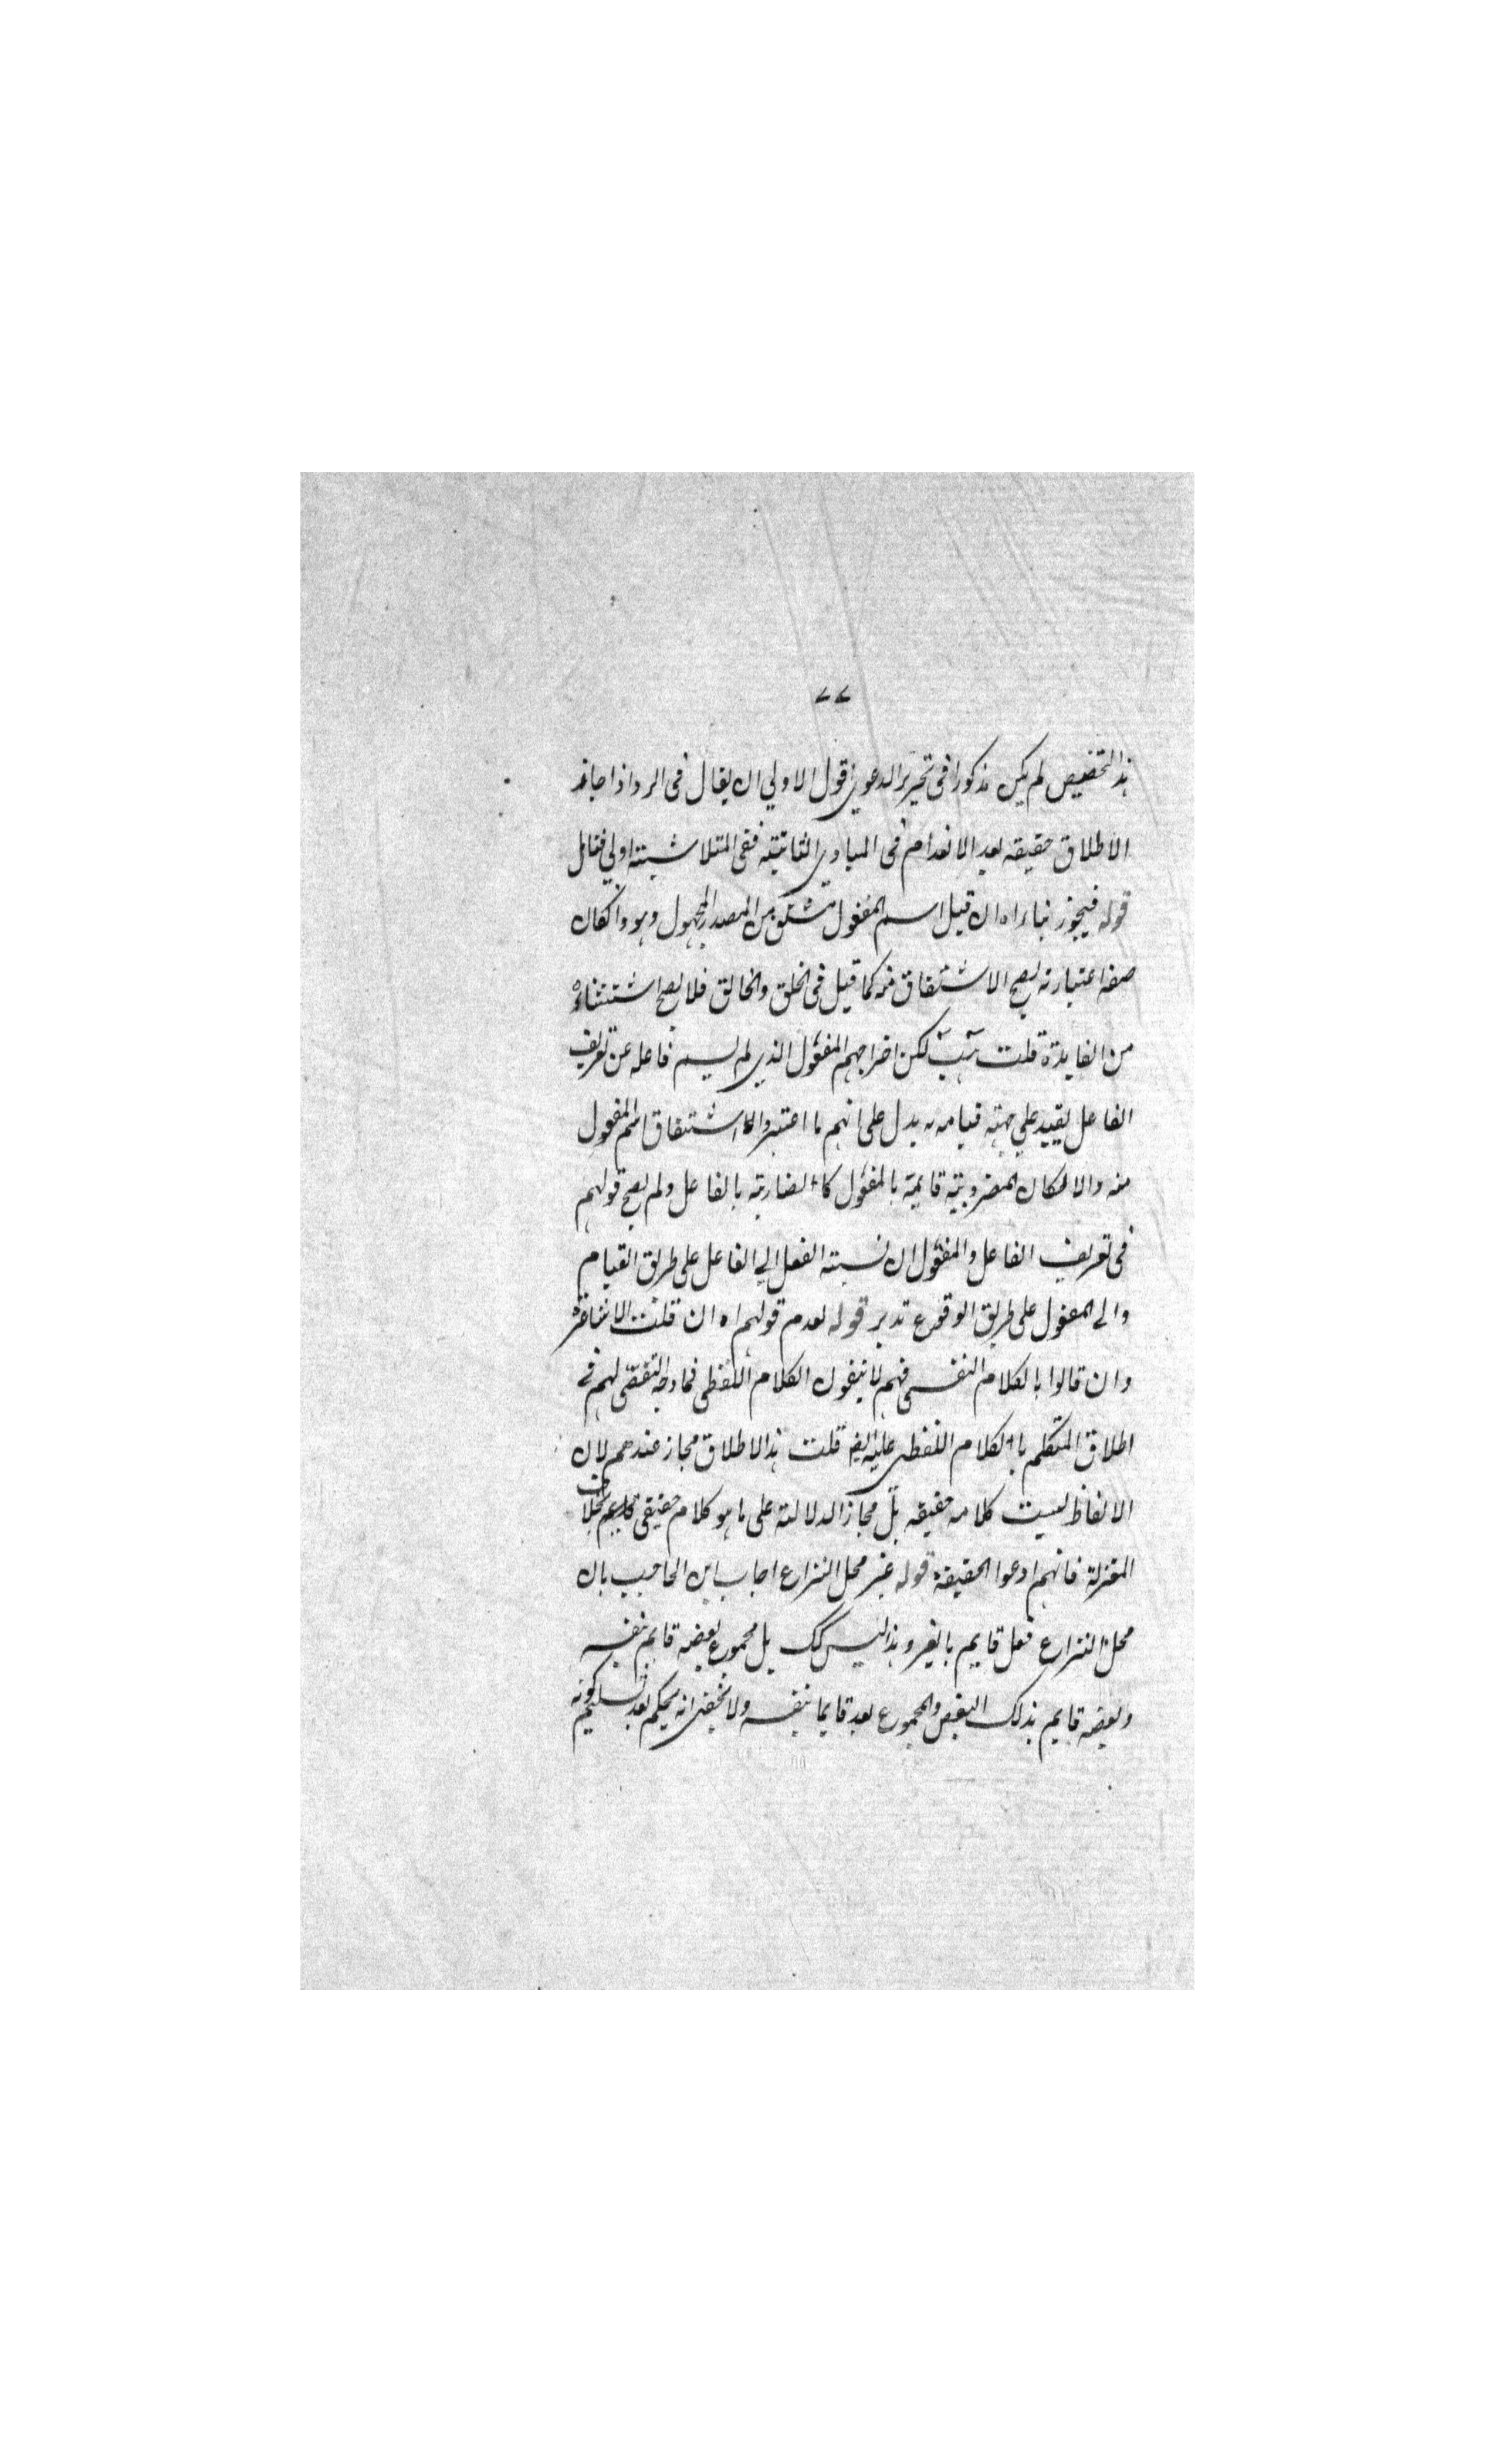 ٧٧
هذا التخصيص لم يكن مذكورا فى تحرير الدعوى اقول الاولي ان يقال فى الرد اذا جاز
الاطلاق حقيقه بعد الانعدام فى المبادى الثابتيه ففى المتلاشيته اولي فتامل
قوله فيجوز بناء اه ان قيل اسم المفعول مشتق من المصدر المجهول وهو وانكان
صفه اعتباريه يصح الاشتقاق منه كما قيل فى الخلق والخالق فلا يصح استثناءه
من الفايدة قلت لكن اخراجهم المفعول الذى لم يسم فاعله عن تعريف
الفاعل بقيد علي جهته قيامه به يدل على انهم ما اعتبروا الا اشتقاق اسم المفعول
منه والا لكان المضروبيته قايمة بالمفعول كالضاربيته بالفاعل ولم يصح قولهم
فى تعريف الفاعل والمفعول ان نسبته الفعل الي الفاعل على طريق القيام
والى المفعول على طريق الوقوع تدبر قوله لعدم قولهم اه ان قلت الاشاعرة
وان قالوا بالكلام النفسى فهم لا ينفون الكلام اللفظى فما وجه التفصى لهم فى
اطلاق المتكلم بالكلام اللفظى عليه قلت هذا الاطلاق مجاز عندهم لان
الالفاظ ليست كلامه حقيقه بل مجاز الدلالته على ما هو كلام حقيقى قايم بخلاف
المعتزلة فانهم ادعوا الحقيقة قوله غير محل النزاع اجاب ابن الحاجب بان
محل النزاع فعل قايم بالغير وهذا ليس كك بل مجموع بعضه قايم بنفسه
وبعضه قايم بذلك البعض والمجموع يعد قايما بنفسه ولا يخفى انه يحكم بعد تسليم كونه